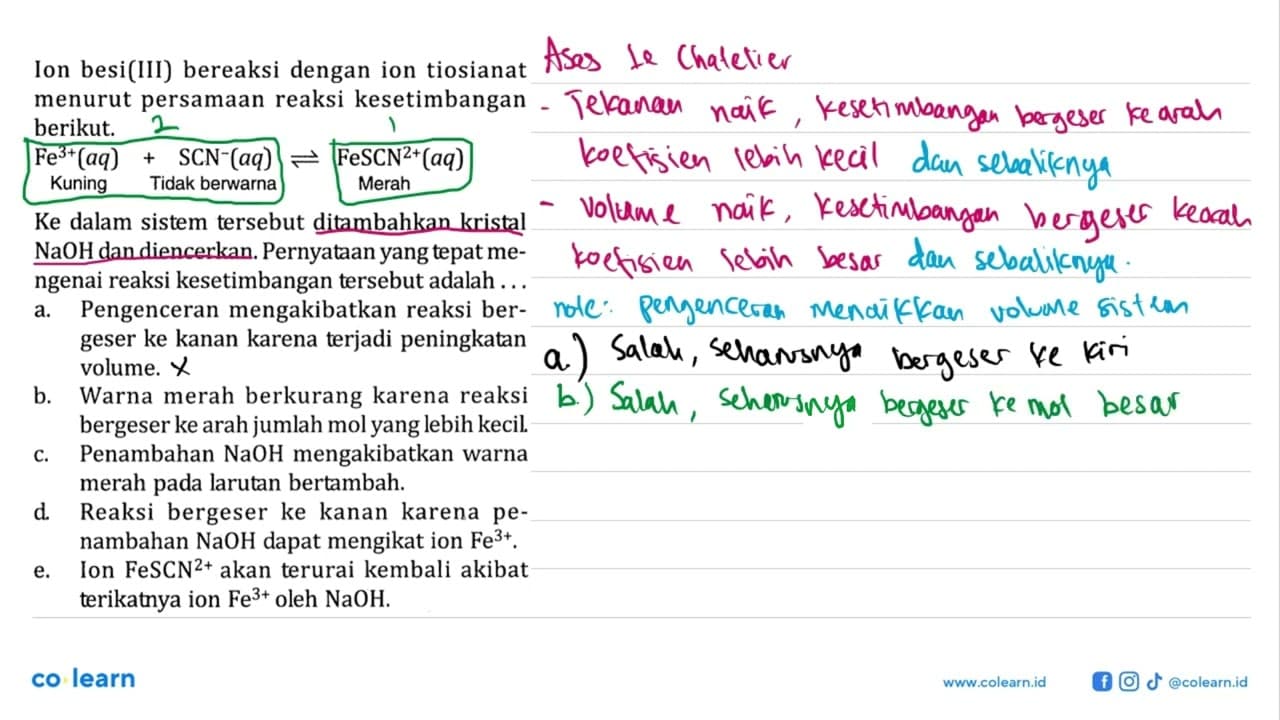 Ion besi(III) bereaksi dengan ion tiosianat
menurut persamaan reaksi kesetimbangan
berikut.
2 1
Fe³⁺(aq) + SCN⁻(aq) ⇌ FeSCN²⁺(aq)
Kuning Tidak berwarna Merah
Ke dalam sistem tersebut ditambahkan kristal
NaOH dan diencerkan. Pernyataan yang tepat me-
ngenai reaksi kesetimbangan tersebut adalah . . .
a. Pengenceran mengakibatkan reaksi ber-
geser ke kanan karena terjadi peningkatan
volume. X
b. Warna merah berkurang karena reaksi
bergeser ke arah jumlah mol yang lebih kecil.
c. Penambahan NaOH mengakibatkan warna
merah pada larutan bertambah.
d. Reaksi bergeser ke kanan karena pe-
nambahan NaOH dapat mengikat ion Fe³⁺.
e. Ion FeSCN²⁺ akan terurai kembali akibat
terikatnya ion Fe³⁺ oleh NaOH.
Asas Le Chatelier
- Tekanan naik, kesetimbangan bergeser ke arah
koefisien lebih kecil dan sebaliknya
- Volume naik, kesetimbangan bergeser kearah
koefisien lebih besar dan sebaliknya.
note: pengenceran menaikkan volume sistem
a.) Salah, seharusnya bergeser ke kiri
b.) Salah, seharusnya bergeser ke mol besar
co learn
www.colearn.id
@colearn.id